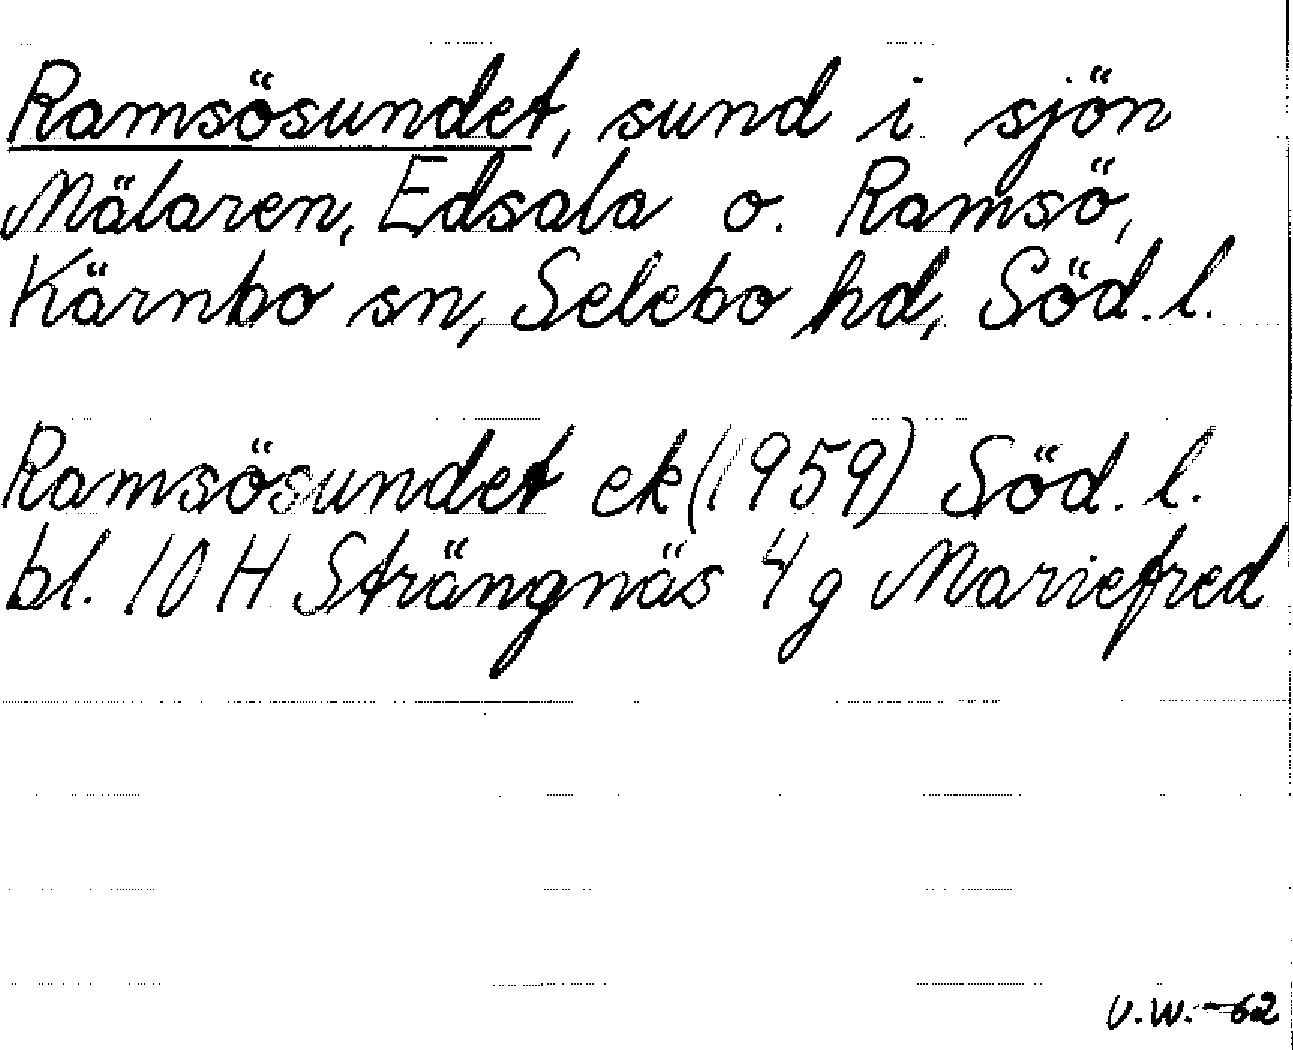 Ramsösundet, sund i sjön
Mälaren, Edsala o. Ramsö,
Kärnbo sn, Selebo hd, Söd. l.
Ramsösundet ek (1959) Söd. l.
bl. 10 H Strängnäs 4 g Mariefred
U.W. -62